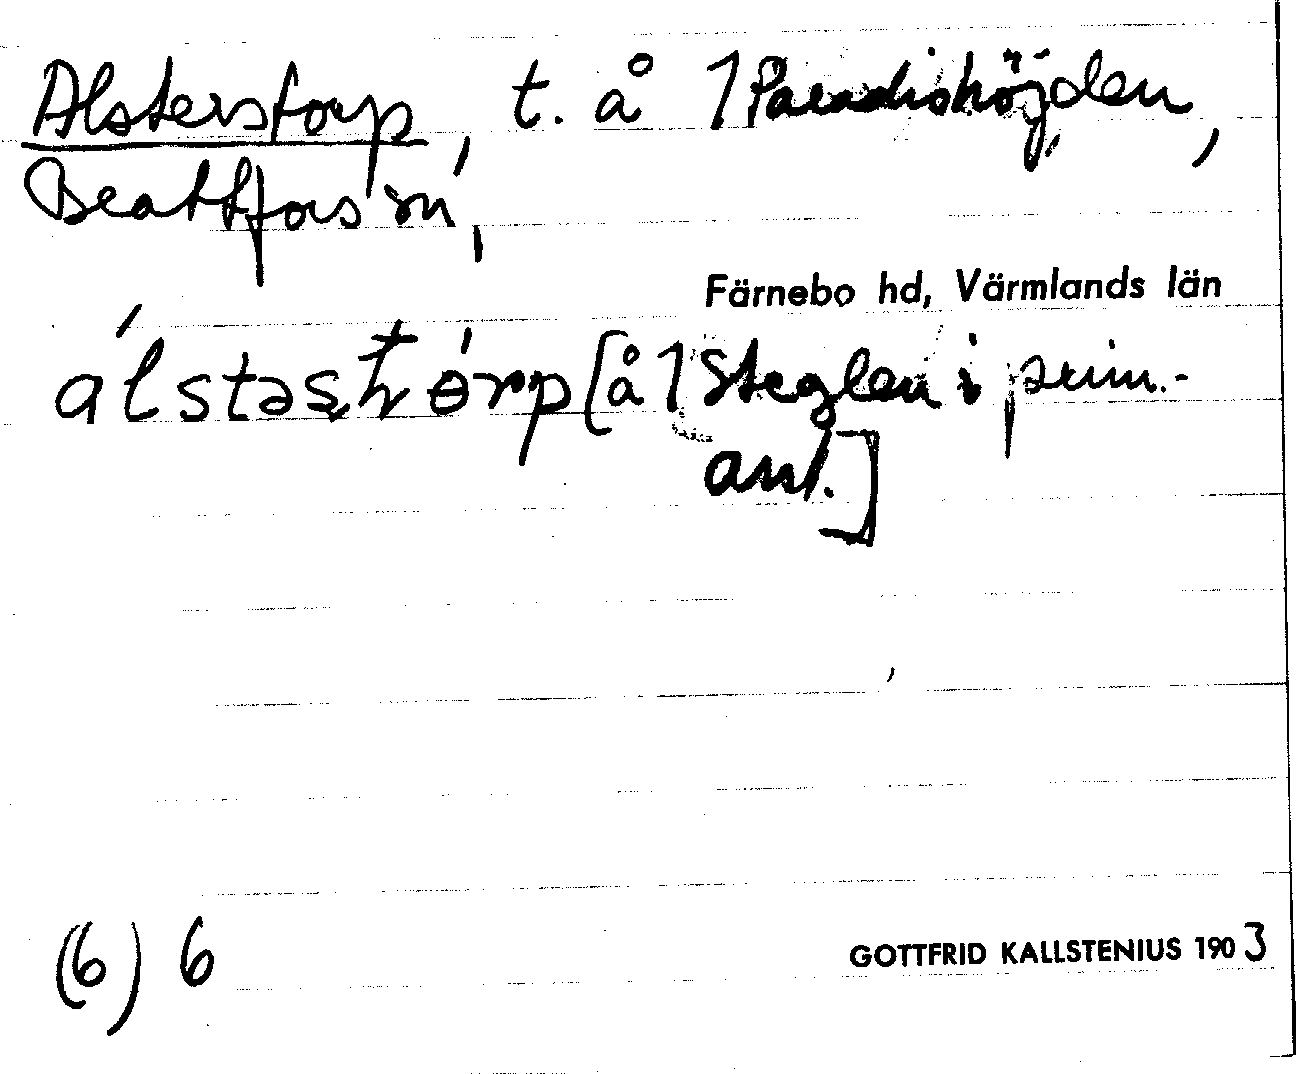 Alsterstorp, t. å 1 Paradishöjden,
Beattfors sn,
Färnebo hd, Värmlands län
álstəsʈórp [å 1 Steglen i prim.-
ant.]
(6) 6
GOTTFRID KALLSTENIUS 1903